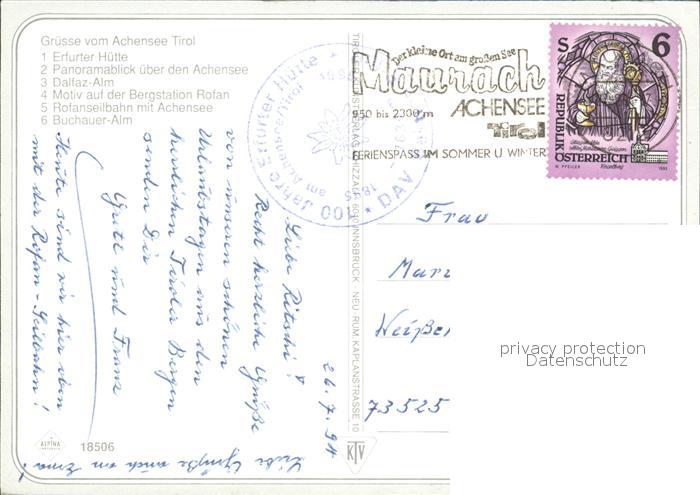 Grüsse vom Achensee Tirol
1 Erfurter Hütte
2 Panoramablick über den Achensee
3 Dalfaz-Alm
4 Motiv auf der Bergstation Rofan
5 Rofanseilbahn mit Achensee
6 Buchauer-Alm
100 Jahre Erfurter Hütte
am Achensee/Tirol
1895
DAV
Der kleine Ort am großen See
Maurach
950 bis 2300 m ACHENSEE
Tirol
FERIENSPASS IM SOMMER U WINTER
S 6
REPUBLIK
ÖSTERREICH
26.7.94
Liebe Ritschi!
Recht herzliche Grüße
von unseren schönen
Urlaubstagen aus den
herrlichen Tiroler Bergen
senden Dir
Gretl und Franz
Heute sind wir hier oben
mit der Rofan-Seilbahn!
Liebe Grüße auch an Erna!
INNSBRUCK - NEU-RUM, KAPLANSTRASSE 10
KTV
ALPINA
18506
Frau
73525
privacy protection
Datenschutz